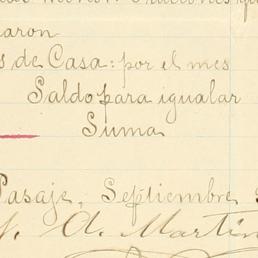 aron
s de Casa: por el mes
Saldo para igualar
Suma
Pasaje, Septiembre
A. Martin